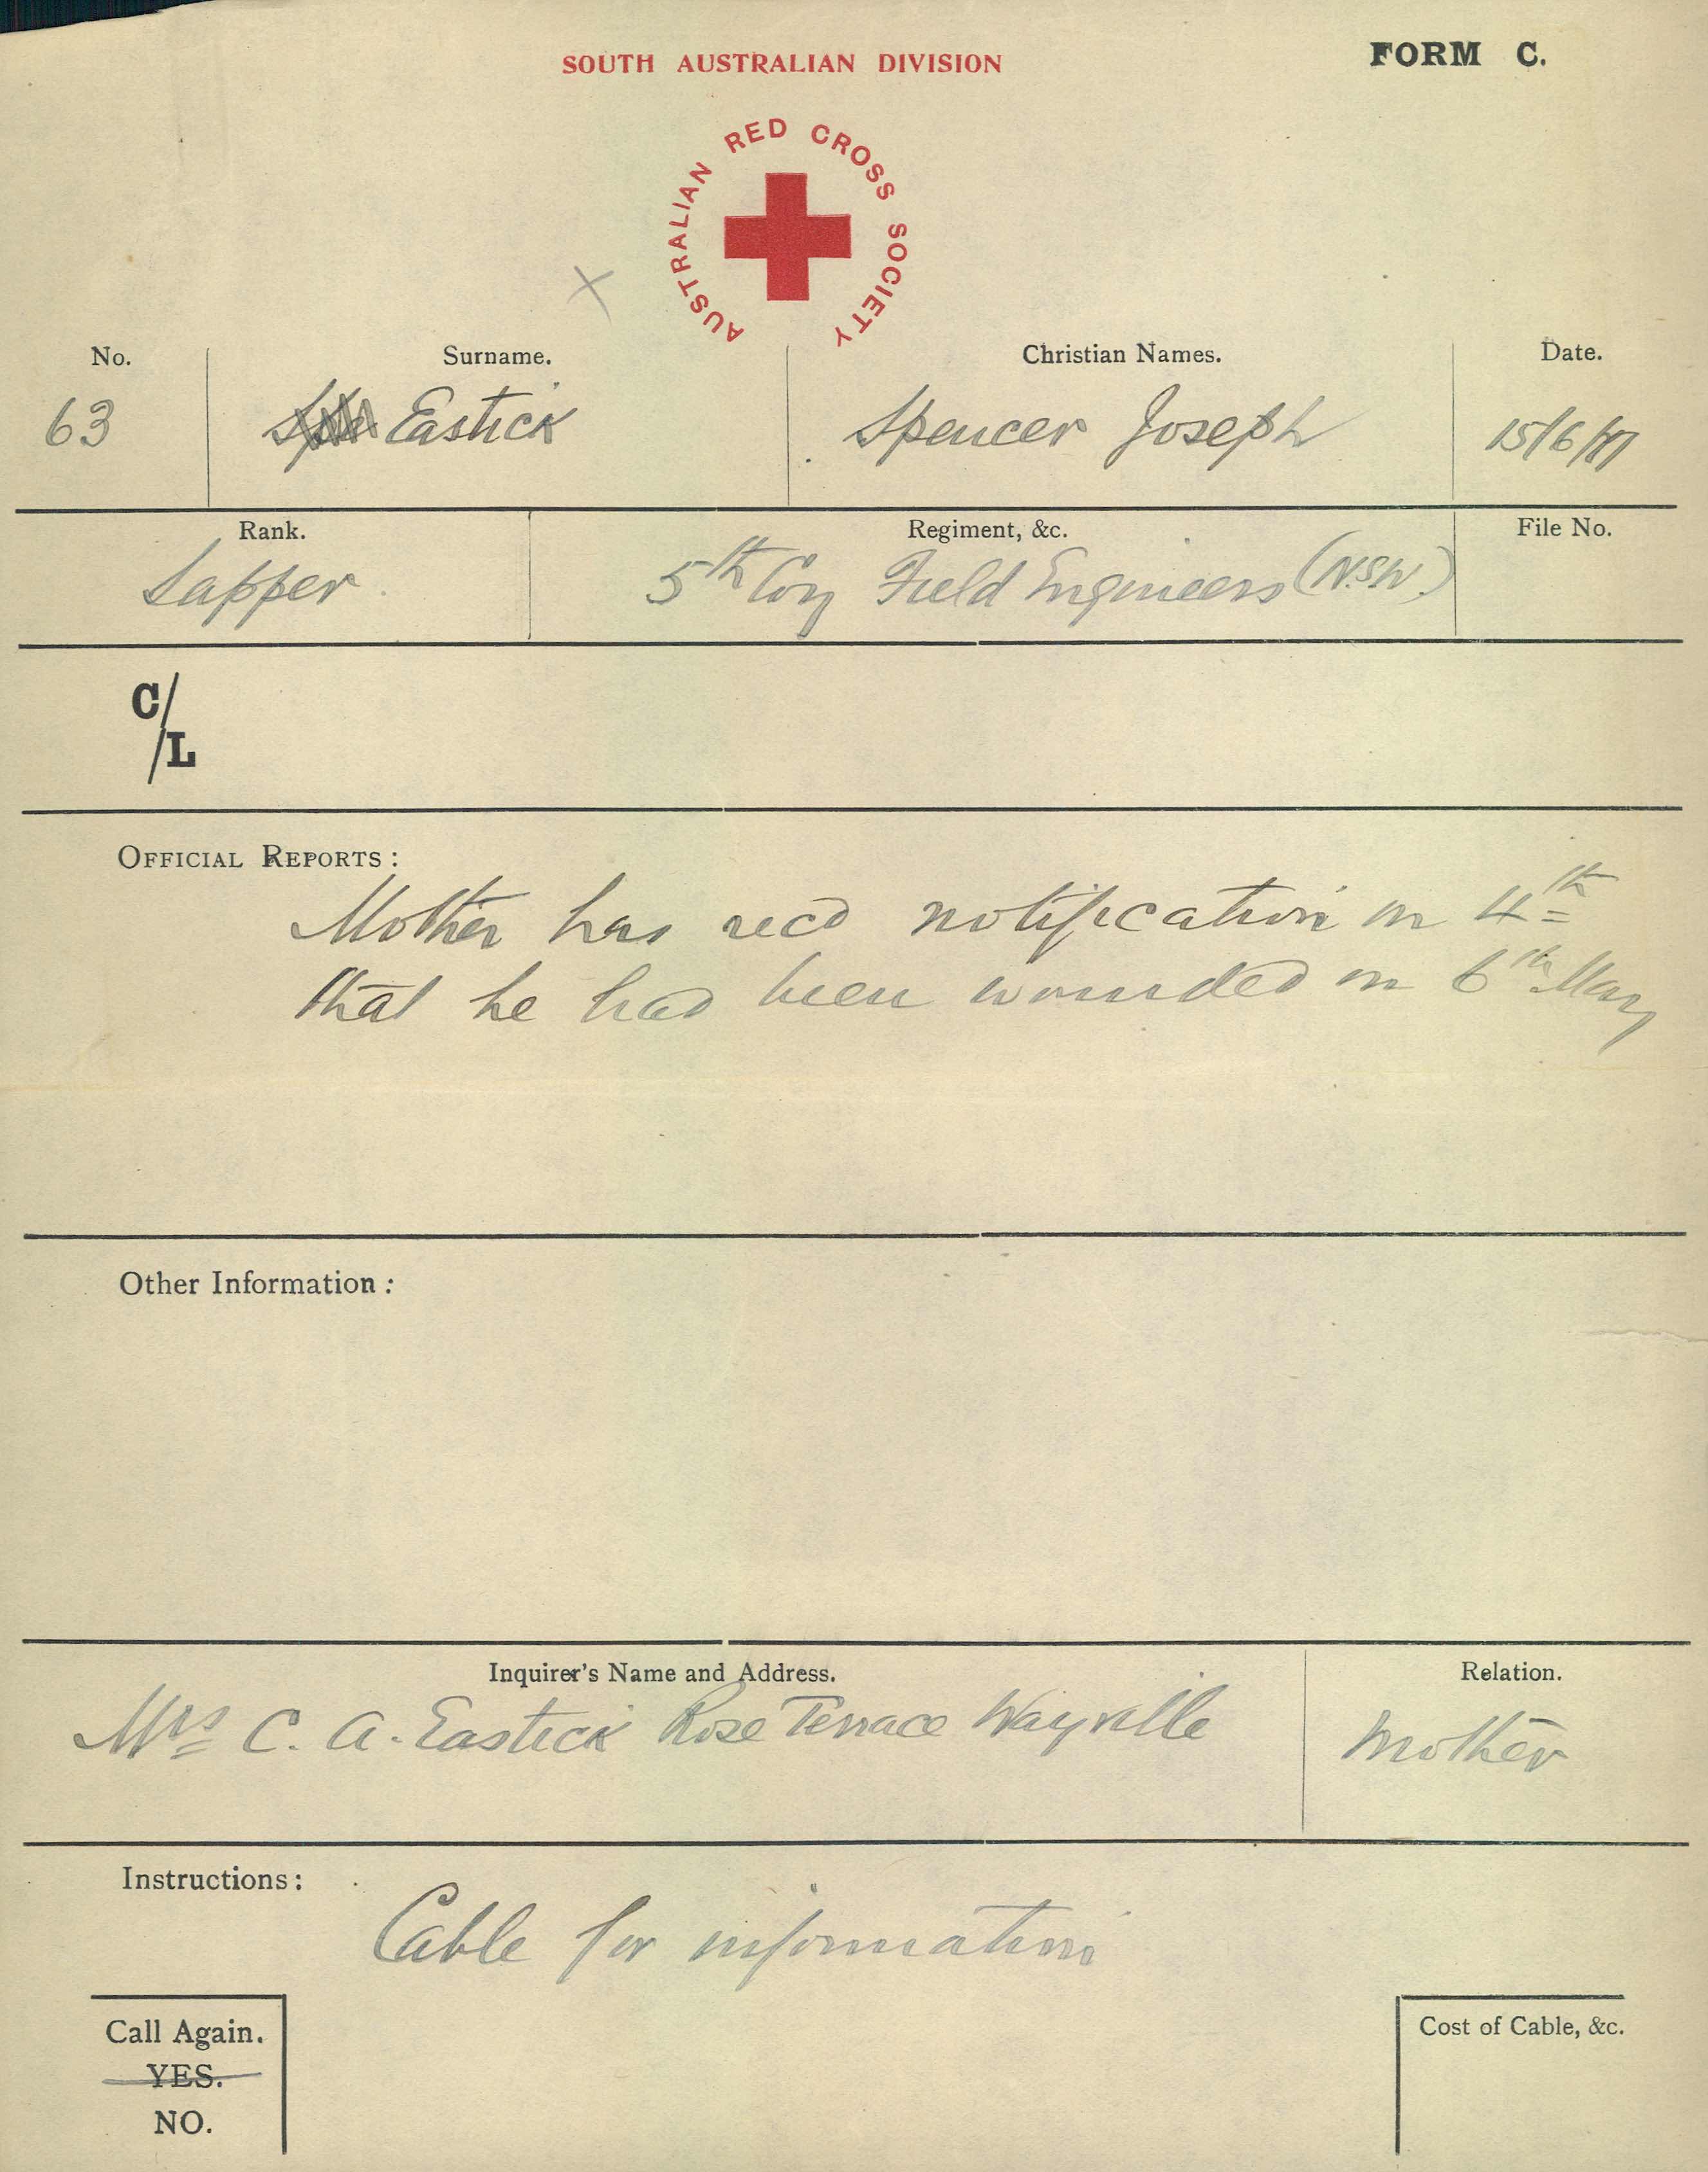 SOUTH AUSTRALIAN DIVISION
FORM C.
AUSTRALIAN RED CROSS SOCIETY
No. Surname. Christian Names. Date.
63 Eastick Spencer Joseph 15/6/17
Rank. Regiment, &c. File No.
Sapper 5th Coy Field Engineers (N.S.W.)
C/L
OFFICIAL REPORTS:
Mother has recd notification on 4th
that he had been wounded on 6th May
Other Information:
Inquirer's Name and Address. Relation.
Mrs C. A. Eastick Rose Terrace Wayville Mother
Instructions:
Cable for information
Call Again.
YES.
NO.
Cost of Cable, &c.